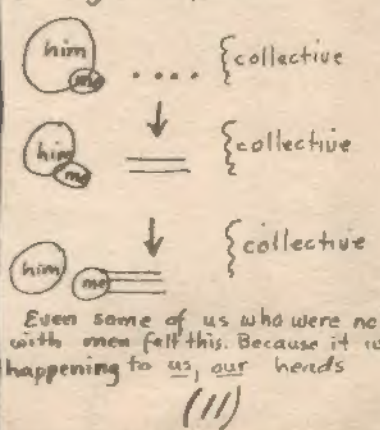 him
me .... {collective
him
me {collective
him me {collective
Even some of us who were no
with men felt this. Because it w
happening to us, our heads
(11)